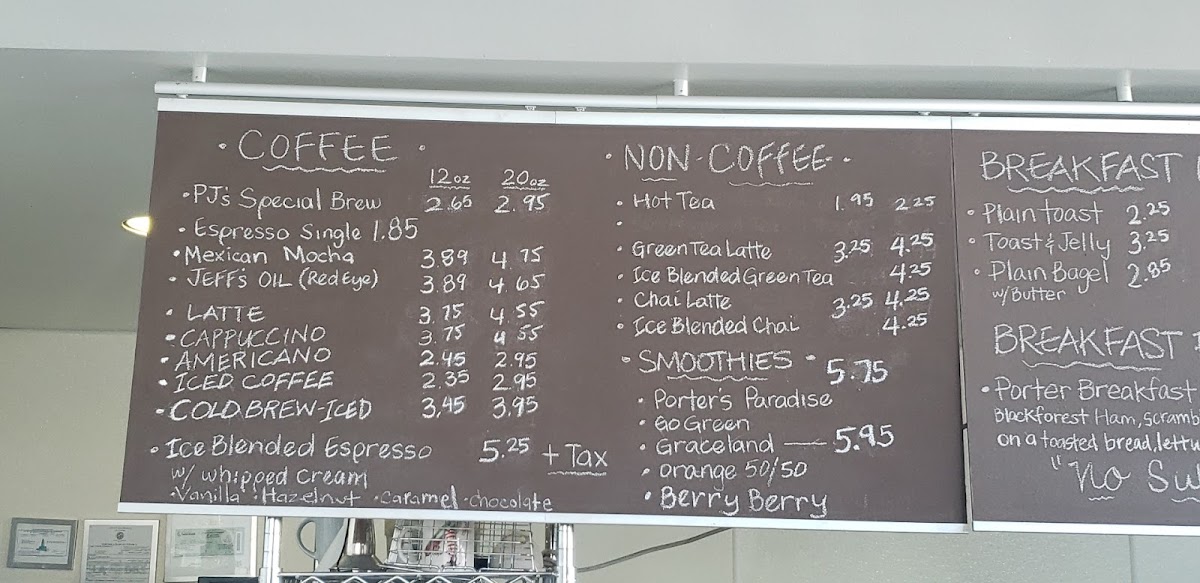 · COFFEE ·
12oz 20oz
· PJ's Special Brew 2.65 2.95
· Espresso Single 1.85
· Mexican Mocha 3.89 4.75
· JEFF'S OIL (Red Eye) 3.89 4.65
· LATTE 3.75 4.55
· CAPPUCCINO 3.75 4.55
· AMERICANO 2.45 2.95
· ICED COFFEE 2.35 2.95
· COLD BREW-ICED 3.45 3.95
· Ice Blended Espresso 5.25 + Tax
w/ whipped cream
· Vanilla · Hazelnut · Caramel · chocolate
· NON-COFFEE ·
· Hot Tea 1.95 2.25
·
· Green Tea Latte 3.25 4.25
· Ice Blended Green Tea 4.25
· Chai Latte 3.25 4.25
· Ice Blended Chai 4.25
· SMOOTHIES · 5.75
· Porter's Paradise
· Go Green
· Graceland — 5.95
· orange 50/50
· Berry Berry
BREAKFAST
· Plain toast 2.25
· Toast & Jelly 3.25
· Plain Bagel 2.85
w/Butter
BREAKFAST
· Porter Breakfast
Blackforest Ham, Scramb
on a toasted bread, lettu
"No Su